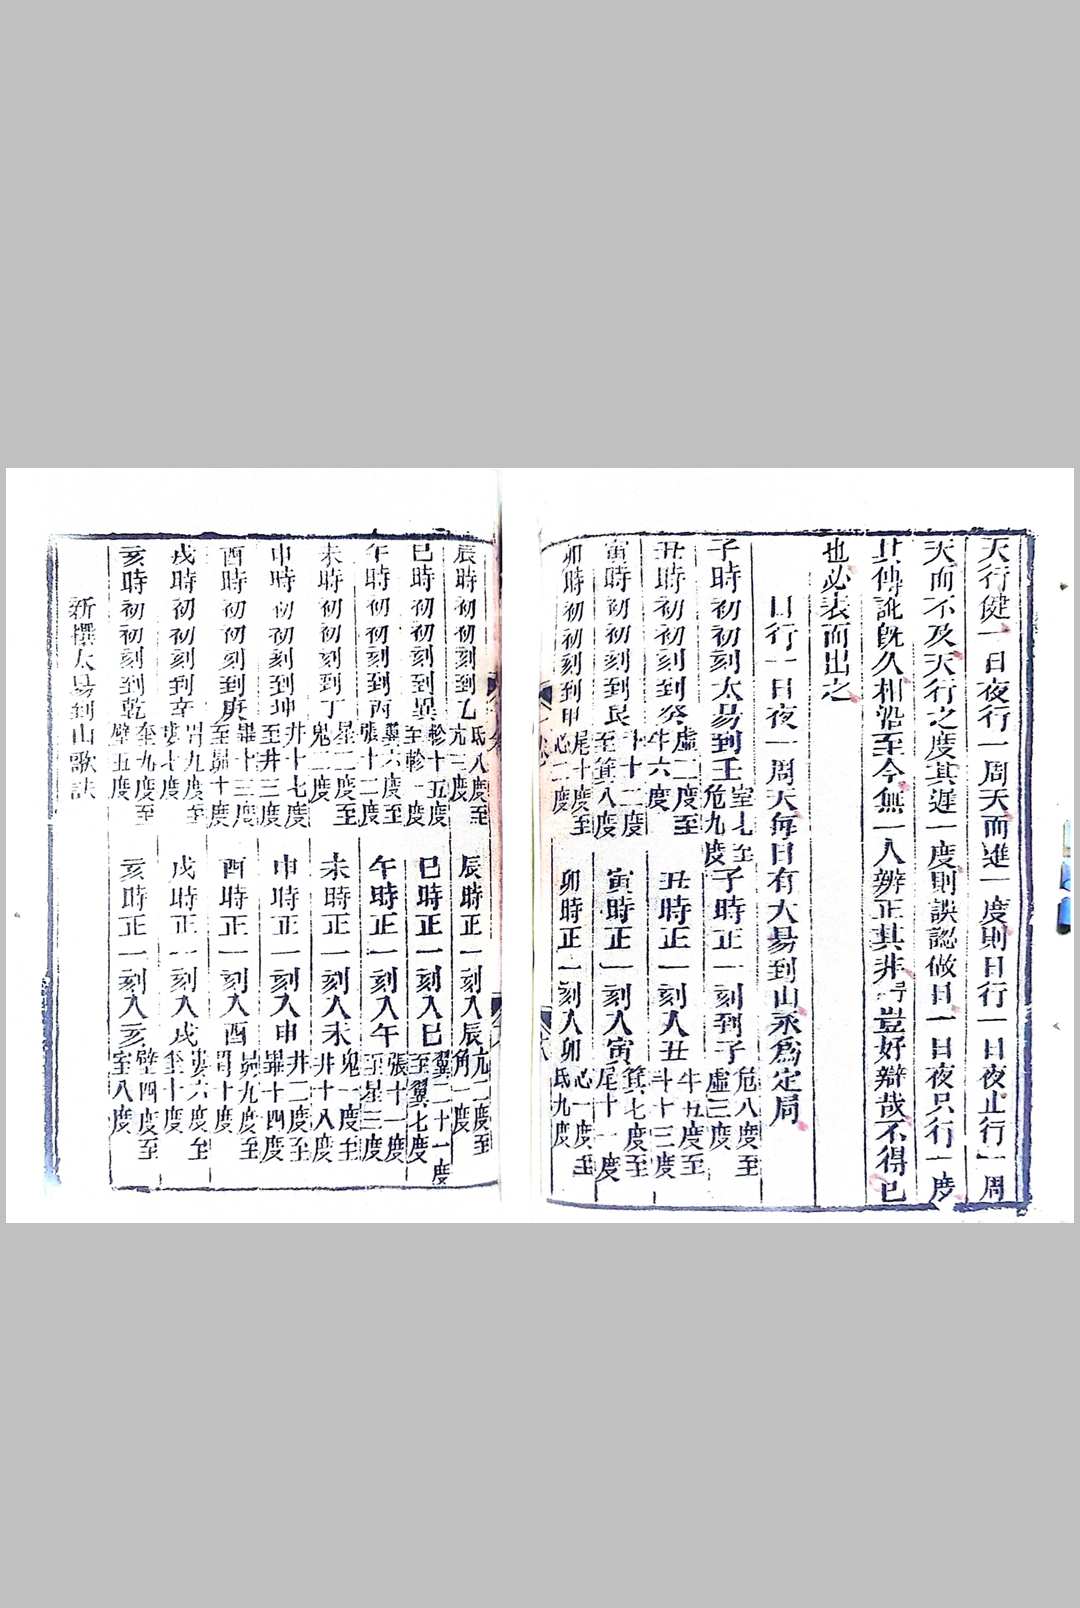 天行健一日夜行一周天而進一度則日行一日夜止行一周
天而不及天行之度其遲一度則誤認做日一日夜只行一度
其傳訛旣久相沿至今無一人辨正其非予豈好辯哉不得已
也必表而出之
日行一日夜一周天每日有太昜到山永爲定局
子時初初刻太昜到壬室七至危九度子時正一刻到子危八度至虛三度
丑時初初刻到癸虛二度至牛六度丑時正一刻入丑牛五度至斗十三度
寅時初初刻到艮斗十二度至箕八度寅時正一刻入寅箕七度至尾十一度
卯時初初刻到甲尾十度至心二度卯時正一刻入卯心一度至氐九度
辰時初初刻到乙氐八度至亢三度辰時正一刻入辰亢二度至角一度
巳時初初刻到巽軫十五度至軫一度巳時正一刻入巳翼二十一度至翼七度
午時初初刻到丙翼六度至張十二度午時正一刻入午張十一度至星三度
未時初初刻到丁星二度至鬼二度未時正一刻入未鬼一度至井十八度
申時初初刻到坤井十七度至井三度申時正一刻入申井二度至畢十四度
酉時初初刻到庚畢十三度至昴十度酉時正一刻入酉昴九度至胃十度
戌時初初刻到辛胃九度至婁七度戌時正一刻入戌婁六度至奎十度
亥時初初刻到乾奎九度至壁五度亥時正一刻入亥壁四度至室八度
新撰太昜到山歌訣